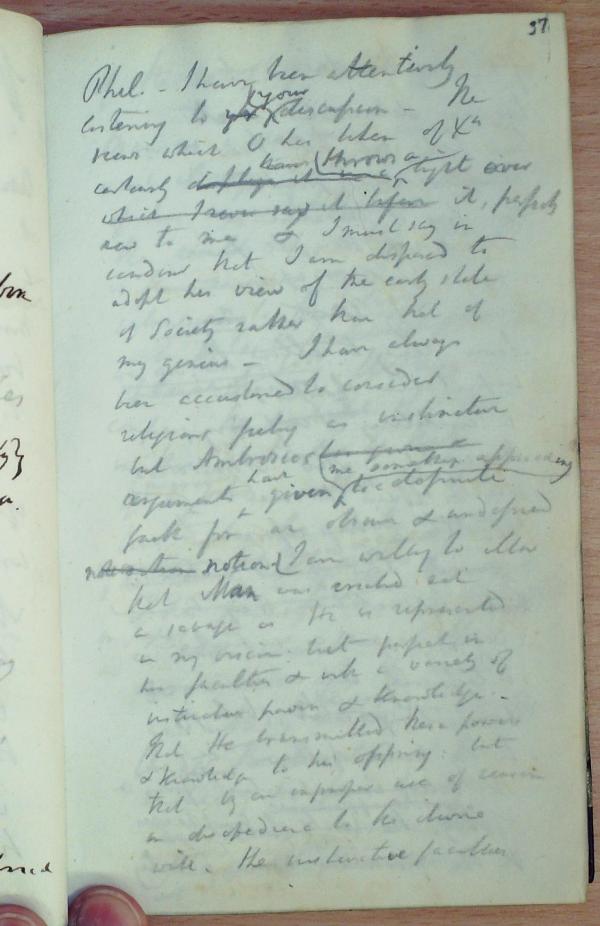 37
Phil. - I have been attentively
listening to your discussion - The
views which O has taken of Xn
certainly throws a light over
which I never saw it before it, perfectly
new to me & I must say in
candour that I am disposed to
adopt his view of the early state
of Society rather than that of
my genius - I have always
been accustomed to consider
religious feeling as instinctive
but Ambrosios
arguments have given me something approaching
to a definite
faith for an obscure & undefined
notion I am willing to allow
that Man was created not
a savage as He is represented
in my vision but perfect in
his faculties & with a variety of
instinctive powers & knowledge. -
That He transmitted these powers
& knowledge to his offspring: but
that by an improper use of reason
in disobedience to the divine
will. the instinctive faculties